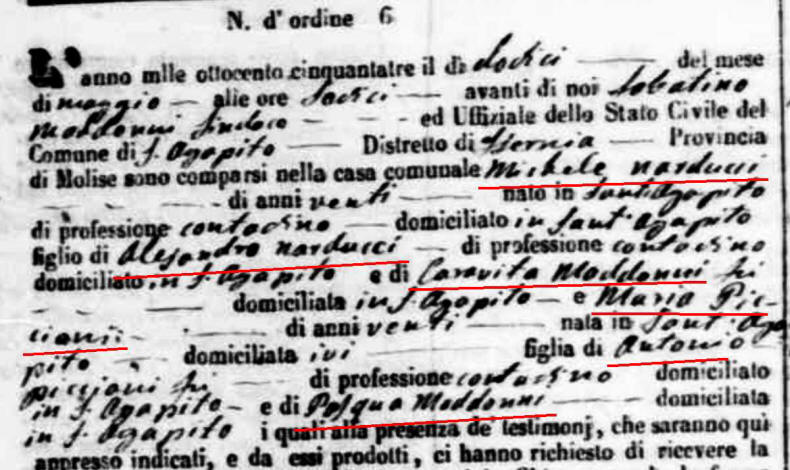 N. d' ordine 6
L' anno mlle ottocento cinquantatre il dì dodici — del mese
di maggio — alle ore dodici — avanti di noi Sabatino
Maddonni Sindaco — ed Uffiziale dello Stato Civile del
Comune di S. Agapito — Distretto di Isernia — Provincia
di Molise sono comparsi nella casa comunale Michele Narducci
— di anni venti — nato in Sant'Agapito
di professione contadino — domiciliato in Sant' Agapito
figlio di Alesandro Narducci — di professione contadino
domiciliato in S. Agapito e di Caravita Maddonni ivi
— domiciliata in S. Agapito — e Maria Pic-
cioni — di anni venti — nata in Sant' Aga
pito — domiciliata ivi — figlia di Antonio
Piccioni — di professione contadino domiciliato
in S. Agapito — e di Pasqua Maddonni — domiciliata
in S. Agapito i quali alla presenza de' testimonj, che saranno qui
appresso indicati, e da essi prodotti, ci hanno richiesto di ricevere la